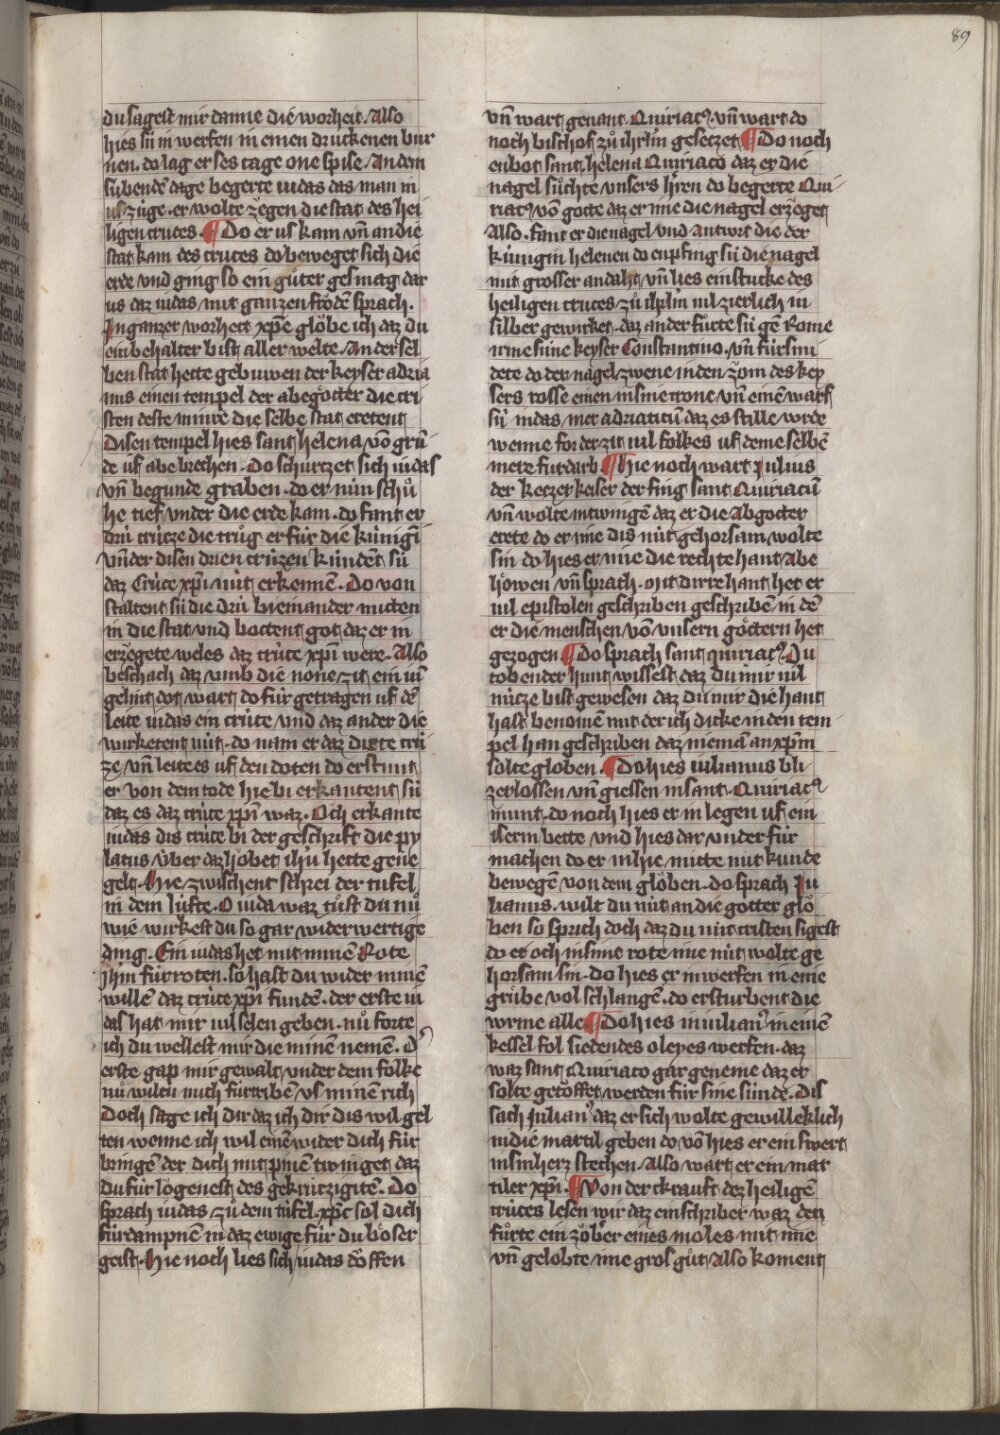 89
du sagest mir danne die worheit. Also
hies sü in werfen in einen druckenen bur
nen. do lag er ses tage one spise. An dem
sybendē dage begerte iudas das man in
us zúge. er wolte zeͤgen die stat des hei
ligen cruces. ¶ Do er us kam vn̄ an die
stat kam des cruces do beweget sich die
erde vnd ging so ein guͤter gesmag dar
us daz iudas mit ganzen froͤdē sprach.
In ganzer worheit xp̄e gloͤbe ich daz du
ein behalter bist aller welte. An der sel
ben stat hette gebuwen der keyser adria
nus einen tempel der abegoͤtter die cri
sten deste minre die selbe stat eretent
Disen tempel hies sant helena vō grū
de uf abe brechen. Do schurczet sich iudas
vn̄ begunde graben. do er nůn schů
he tief vnder die erde kam. do fant er
drú crúcze die trůg er fúr die kúnigī
vn̄der disen drien crúzen kúndēt sú
daz Crúce xp̄i nút erkennē. Do von
staltent sú die drú bi einander mitten
in die stat vnd bottent got daz er in
erzegete weles daz crúce xp̄i were. Also
beschach daz vmb die none zit ein iū
geling dot wart do fúr getragen uf dē
leite iudas ein crúce vnd daz ander die
wurketent nút. do nam er daz dirte crú
ze vn̄ leite es uf den doten do erstunt
er von dem tode hie bi erkantent sú
daz es daz crúce xp̄i waz. Och erkante
iudas dis crúce bi der geschrift die py
latus úber daz hoͤbet ih̄u hette gene
gelt. Hie zwischent schrei der tufel
in dem lúfte. O iuda waz tůst du nů
wie wirkest du so gar widerwertige
ding. Ein iudas het mit minē Rote
Jh̄m fúrroten. so hast du wider minē
willē daz crúce xp̄i fundē. der erste iu
das hat mir uil selen geben. nů forte
ich du wellest mir die minen nemē. Dʾ
erste gap mir gewalt vnder dem folke
nů wiltu mich fúrtribē vs minē rich
Doch sage ich dir daz ich dir dis wil gel
ten wenne ich wil einē wider dich fúr
bringē der dich mit pinē twinget daz
du fúrloͤgenest des gekrúczigitē. Do
sprach iudas zů dem túfel. xp̄c sol dich
fúrdampnē in daz ewige fúr du boͤser
geist. Hie noch lies sich iudas doͤffen
vn̄ wart genant Quiriacꝰ. vn̄ wart do
noch bischof zů ih̄rlm̄ geseczet ¶ Do noch
enbot sant helena Quiriaco daz er die
nagel sůchte vnsers h̄ren do begerte Qui
riacꝰ vō gotte daz er ime die nagel erzeget
Also. fant er die nagel vnd antwrt die der
kúnigin helenen do enpfing sú die nagel
mit grosser andaht vn̄ lies ein stucke des
heiligen cruces zů ih̄rlm̄ uil zierlich in
silber gewirket. daz ander fúrte sú gē Rome
irme sune keyser Constantino. vn̄ fúrsmi
dete do der nagel zwene in den zoͤm des key
sers rosse einen in sine crone vn̄ einē warf
sú in das mer adriaticū daz es stille wrde
wenne for der zit uil folkes uf deme selbē
mere furdarb ¶ Hie noch wart Julius
der keczer keiser der fing sant Quiriacū
vn̄ wolte in twingē daz er die Abgoͤtter
erete do er ime dis nút gehorsam wolte
sin do hies er ime die rechte hant Abe
hoͤwen vn̄ sprach. mit dirre hant het er
uil epistolen geschriben geschribē in dē
er die menschen vō vnsern goͤttern het
gezogen ¶ Do sprach sant quiriacꝰ. Du
tobender hunt wissest daz du mir uil
núcze bist gewesen daz du mir die hant
hast benomē mit der ich dicke in den tem
pel han geschriben daz niemā an xp̄m
solte gloͤben. ¶ Do hies iulianus bli
zerlossen vn̄ giessen in sant. Quiriacꝰ
munt. do noch hies er in legen uf ein
iserin bette vnd hies dar vnder fúr
machen do er in hie mitte nút kunde
bewegē von dem gloͤben. do sprach Ju
lianus. wilt du nút an die goͤtter gloͤ
ben so sprich doch daz du nút cristen sigest
do er och in sime rote ime nút wolte ge
horsam sin. do hies er in werfen in eine
grůbe vol schlangē. do ersturbent die
wrme alle ¶ Do hies in iulianꝰ in einē
kessel fol siedendes oleyes werfen. daz
waz sant Quiriaco gar geneme daz er
solte getoͤffet werden fúr sine súnde. Dis
sach Julianꝰ daz er sich wolte gewilleklich
in die martil geben do vō hies er ein swert
in sin herz stechen. Also wart er ein mar
tiler xp̄i. ¶ Von der kraft dez heiligē
crúces lesen wir daz ein schriber waz den
fůrte ein zoͤber eines moles mit ime
vn̄ gelobte ime gros gůt Also koment